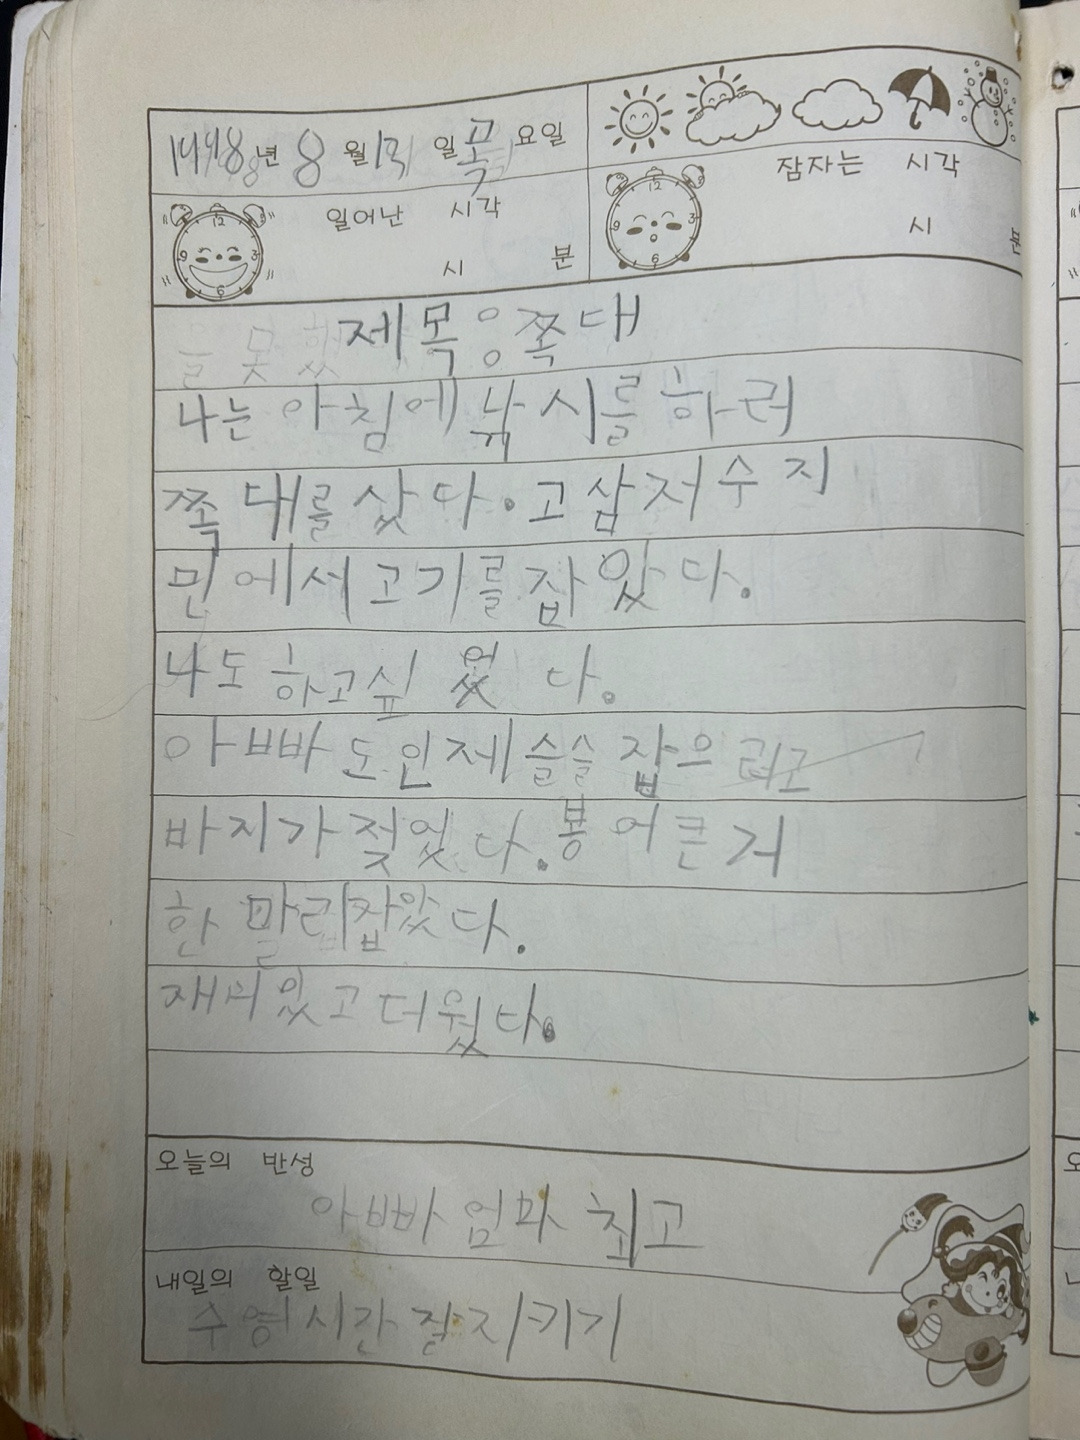 1998년 8월 13일 목요일
잠자는 시각
시 분
일어난 시각
시 분
제목 쪽대
나는 아침에 낚시를 하러
쪽대를 샀다. 고삼저수지
민에서 고기를 잡았다.
나도 하고싶 었다.
아빠도 인제 슬슬 잡으
바지가 젖었다. 붕어 큰 거
한 말리 잡았다.
재미있고 더웠다.
오늘의 반성
아빠 엄마 최고
내일의 할일
수영시간 잘 지키기